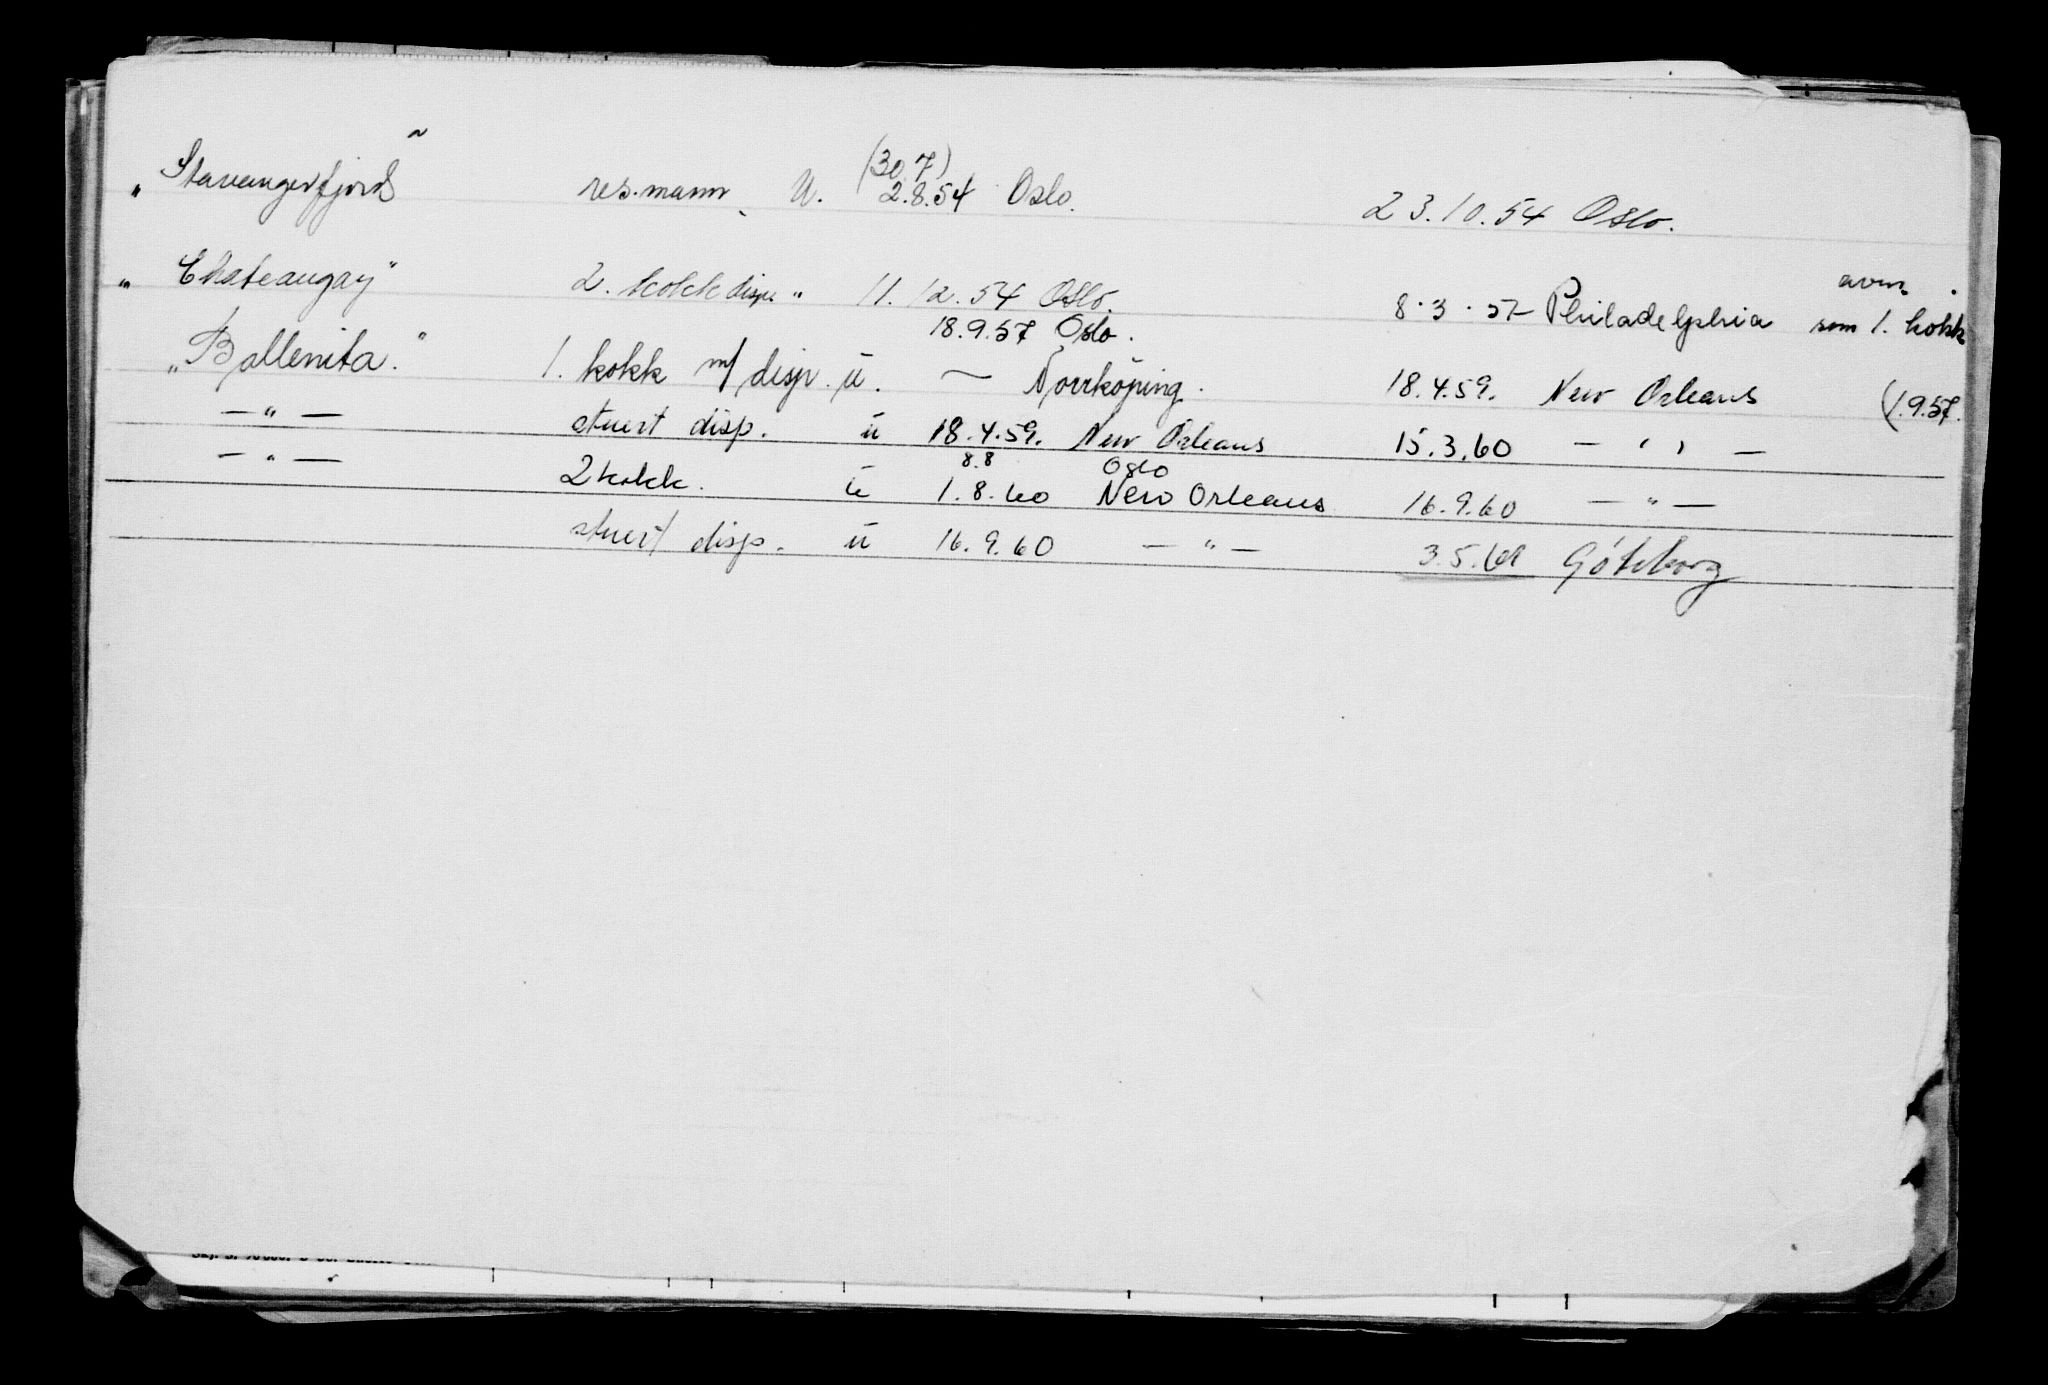 (30.7)
"Stavangerfjord" res.mann U. 2.8.54 Oslo. 23.10.54 Oslo.
"Chateaugay" 2. kokk disp. " 11.12.54 Oslo. 8.3.57 Philadelphia avm. som 1. kokk
18.9.57 Oslo.
"Ballenita." 1. kokk m/ disp. u. ~ Norrköping. 18.4.59. New Orleans (1.9.57.
— " — stuert disp. u 18.4.59. New Orleans 15.3.60 — " —
8.8 Oslo
— " — 2 kokk. u 1.8.60 New Orleans 16.9.60 — " —
stuert disp. u 16.9.60 — " — 3.5.61 Göteborg